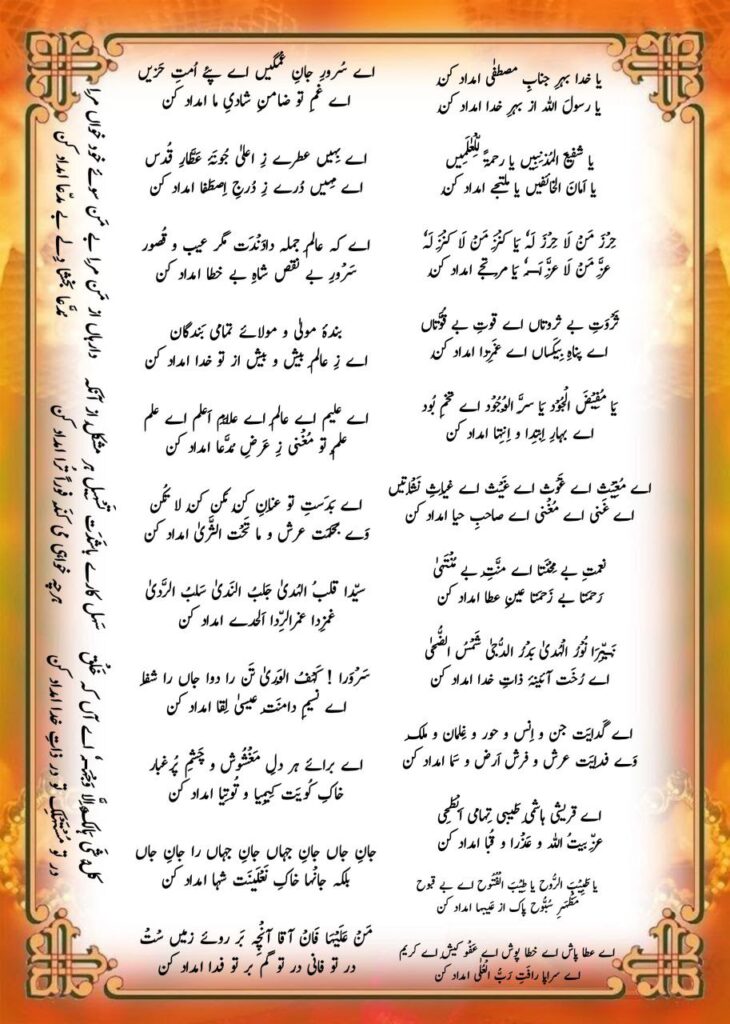 یا خدا بہرِ جنابِ مصطفٰی امداد کن
یا رسولَ اللہ از بہرِ خدا امداد کن
یا شفیعَ المُذنِبِیں یا رحمۃً لِّلْعٰلَمِیں
یا اَمَانَ الخَائفیں یا مُلتجے امداد کن
حِرْزَ مَنْ لَا حِرْزَ لَہٗ یَا کَنْزَ مَنْ لَا کَنْزَ لَہٗ
عِزَّ مَنْ لَا عِزَّ لَہٗ یا مرتجے امداد کن
ثَرْوَتِ بے ثروتاں اے قوتِ بے قُوَّتاں
اے پناہِ بیکساں اے غمزدا امداد کن
یَا مُفِیْضَ الْجُوْد یَا سِرَّ الوُجُوْد اے تخمِ بُود
اے بہارِ اِبتِدا و اِنتِہا امداد کن
اے مُغِیْث اے غَوْث اے غَیْث اے غیاثِ نَشْأتَیں
اے غَنی اے مُغْنی اے صاحبِ حیا امداد کن
نعمتِ بے مِحْنَتا اے مِنَّتِ بے مُنْتَہٰی
رَحمَتا بے زَحمَتا عینِ عطا امداد کن
نَیِّرَا نُوْرُ الْہُدیٰ بَدْرُ الدُّجیٰ شَمْسُ الضُّحٰی
اے رُخَت آئینۂ ذاتِ خدا امداد کن
اے گَدایَت جن و اِنس و حور و غِلمان و ملک
وَے فدایَت عرش و فرش اَرض و سَما امداد کن
اے قریشی ہاشمی طیبی تہامی اَبطَحی
عزِّ بیتُ اللہ و عَذْرا و قُبا امداد کن
یا طَبِیْبَ الرُّوح یا طِیْبَ الْفُتُوح اے بے قبوح
مَظْہَرِ سُبُّوح پاک از عیبہا امداد کن
اے عطا پاش اے خطا پوش اے عفو کیش اے کریم
اے سراپا رافتِ رَبُّ العُلٰی امداد کن
اے سُرورِ جانِ غمگیں اے پئے اُمت حَزیں
اے غمِ تو ضامنِ شادیِ ما امداد کن
اے بِہیں عطرے زِ اعلیٰ جُونَۂ عَطّارِ قُدْس
اے مِہیں دُرے زِ دُرجِ اِصطَفا امداد کن
اے کہ عالم جملہ دادَنْدَت مگر عیب و قُصور
سَرْوَرِ بے نقص شاہِ بے خطا امداد کن
بندۂ مولیٰ و مولائے تمامی بَندگان
اے زِ عالم بیش و بیش از تو خدا امداد کن
اے علیم اے عالم اے علّام اَعلم اے علم
علمِ تو مُغْنی زِ عَرضِ مُدَّعا امداد کن
اے بَدَستِ تو عنانِ کُن مَکُن کُن لَا تَکُن
وَے بحکمَت عرش و ما تَحْت الثَّریٰ امداد کن
سیّدا قلبُ الہُدیٰ جَلبُ النَّدیٰ سَلبُ الرَّدیٰ
غمزدا غمرالرِّدا اَلحدے امداد کن
سَرْوَرا ! کَہْفُ الْوَرٰی تَن را دوا جاں را شفا
اے نسیمِ دامنَت عیسیٰ لِقا امداد کن
اے برائے ہر دلِ مَغْشُوش و چَشْمِ پُرغبار
خاکِ کُویَت کیمیا و تُوتِیا امداد کن
جانِ جاں جانِ جہاں جانِ جہاں را جانِ جاں
بلکہ جانہا خاکِ نَعْلَیْنَت شہا امداد کن
مَنْ عَلَیْہَا فَانْ آقا آنْچِہ بَر روئے زمیں سْت
در تو فانی در تو گُم بر تو فدا امداد کن
کُلُّ شَیْءٍ ہَالِکٌ اِلَّا وَجْہَہٗ اے آں کہ خَلْق
در تو مُسْتَہْلِک تو در ذاتِ خدا امداد کن
سَہل کارے باشَدَت تَسْہِیلِ ہر مشکل از آنکہ
ہرچِہ خواہی می کُنَد فَوراً تُرا امداد کن
دارہاں از مَن مرا بے مَن سوئے خود خواں مرا
مُدَّعا بَخشا دِلے بے مدّعا امداد کن